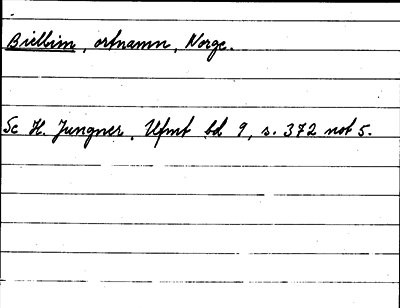 Bielbim, ortnamn, Norge.
Se H. Jungner, Ufmt bd 9, s. 372 not 5.